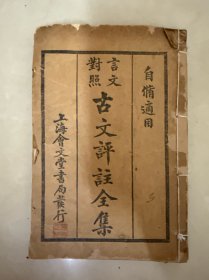 自脩適用
言文
對照
古文評註全集
上海會文堂書局發行